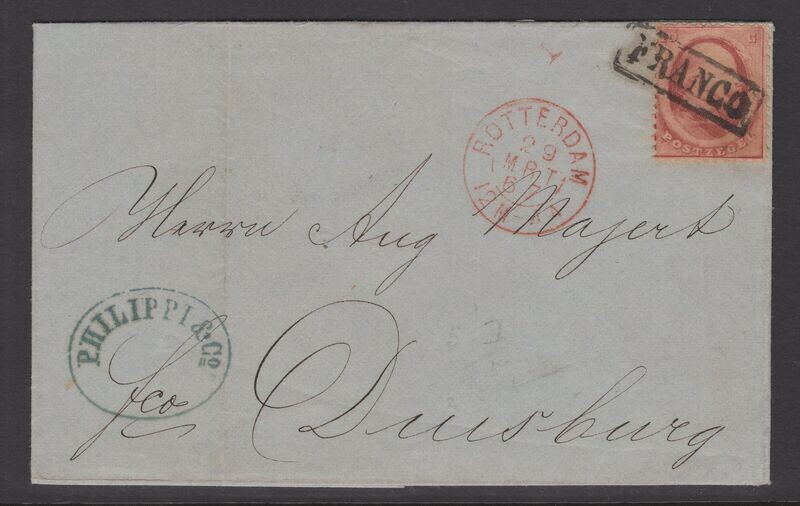 FRANCO
POSTZEGEL
ROTTERDAM
29
MRT
67
12M
Herrn Aug Majert
PHILIPPI & Co
fco Duisburg